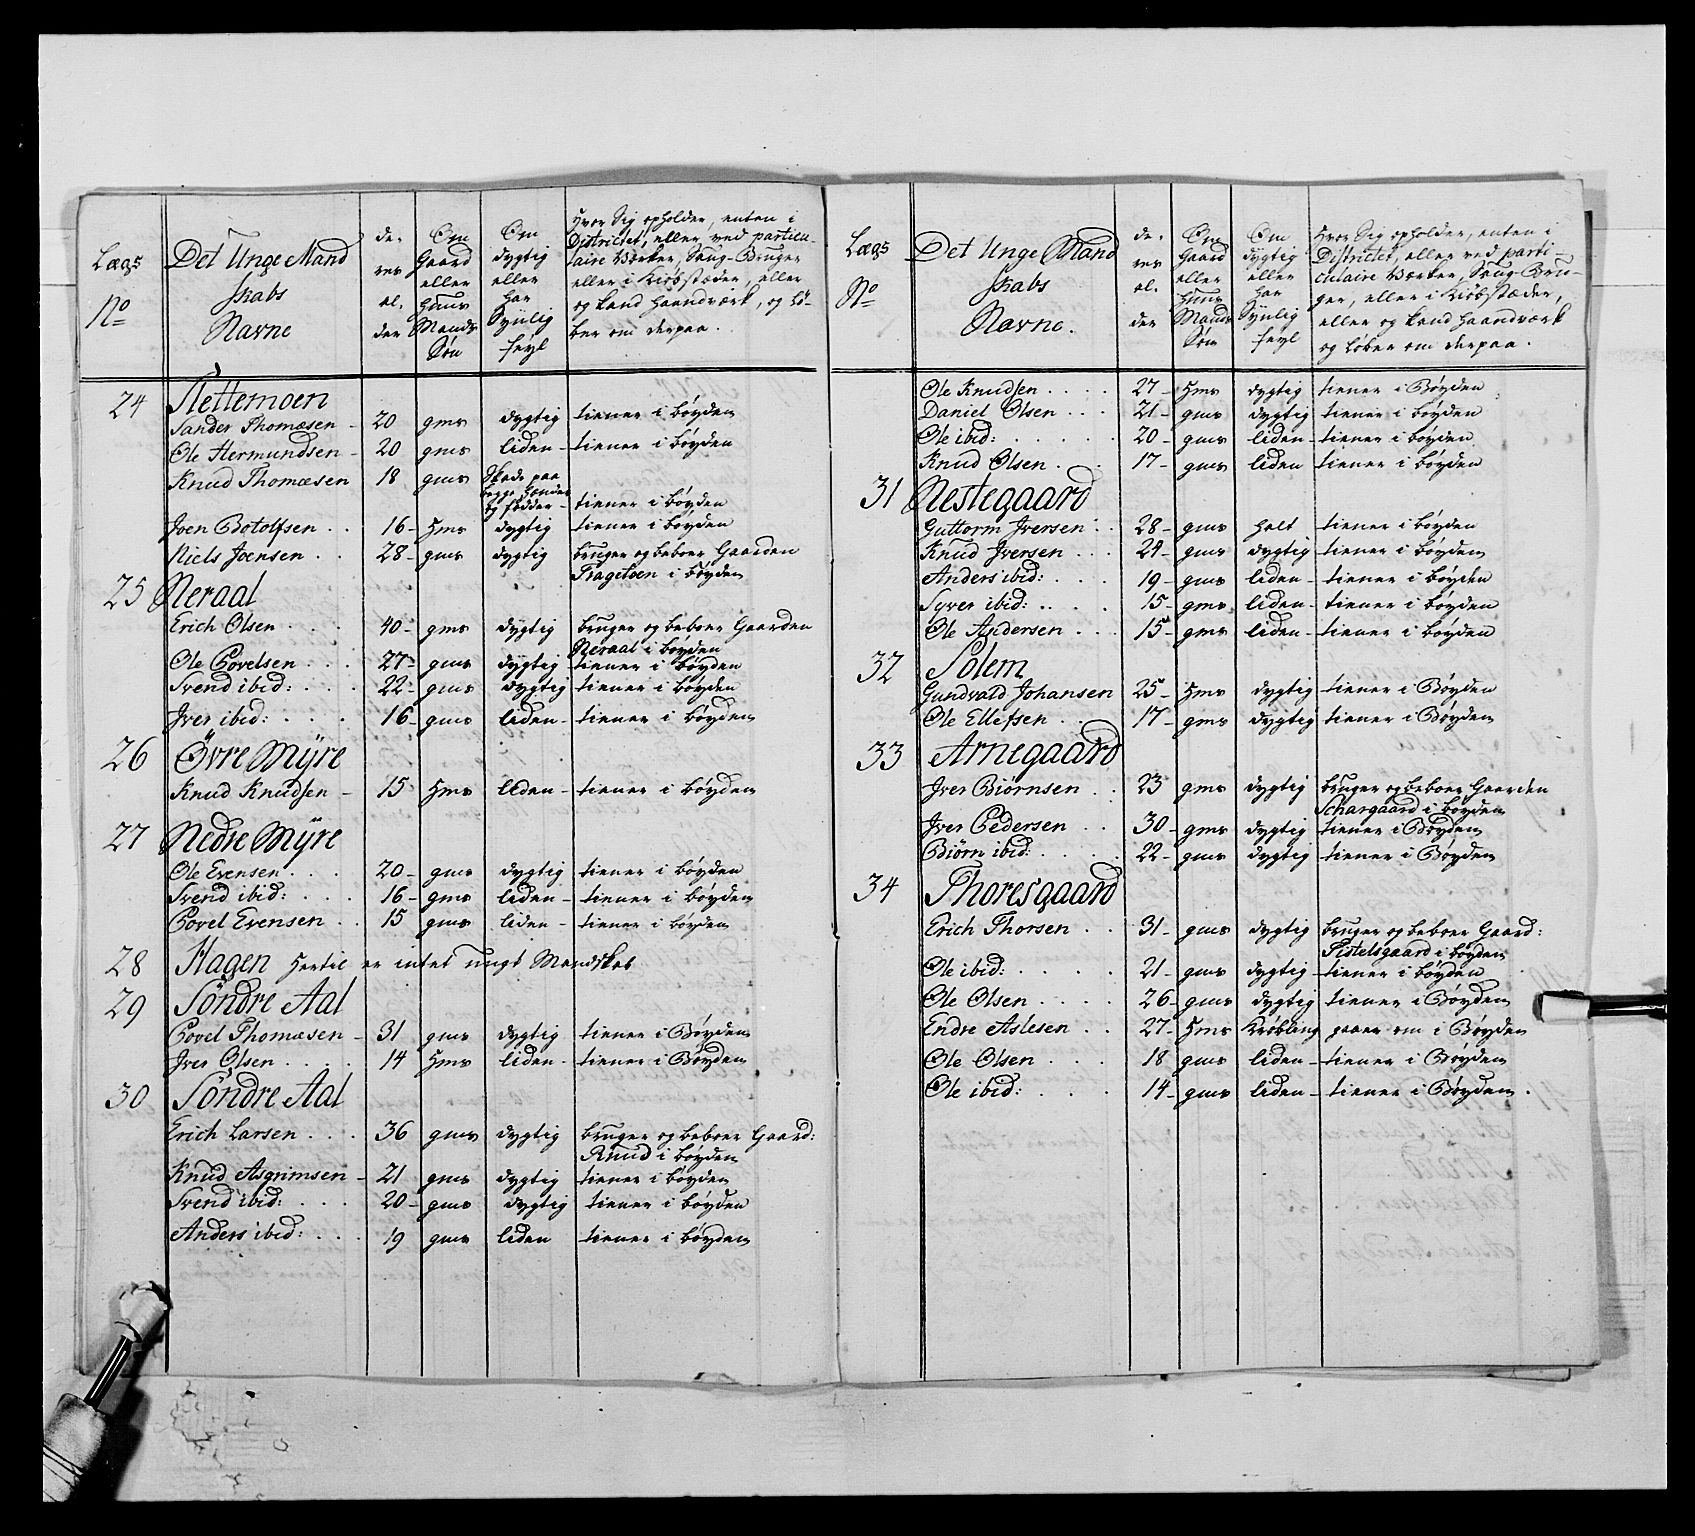 Lægs
No
Det Unge Mand
skabs
Navne
de-
res
al-
der
Om
Gaard
eller
Huus
Mands
Søn
Om
dygtig
eller
har
Synlig
feyl
Hvor Sig opholder, enten i
Districtet, eller ved particu-
laire Værker, Saug-Bruger
eller i Kiøbstæder, eller
og kand Haandværk, og lø-
ber om derpaa.
24 Slettemoen
Sander Thomesen - 20 gms dygtig tiener i bøyden
Ole Hermundsen - 20 gms liden - tiener i bøyden
Knud Thomesen 18 gms Skade paa
begge Hænder
og fødder - tiener i bøyden
Iven Botolfsen . . 16 - Hms dygtig tiener i bøyden
Niels Joensen . . 28 - gms dygtig bruger og beboer Gaarden
Trageton i bøyden
25 Neraal
Erich Olsen . . . 40 - gms dygtig bruger og beboer Gaarden
Neraal i bøyden
Ole Povelsen . . . 27 - gms dygtig tiener i bøyden
Svend ibid: . . . 22 - gms dygtig tiener i bøyden
Iver ibid: . . . . 16 - gms liden - tiener i bøyden
26 Övre Myre
Knud Knudsen - 15 Hms liden - tiener i bøyden
27 Nedre Myre
Ole Evensen . . . 20 - gms dygtig tiener i bøyden
Svend ibid: . . . . 16 - gms liden - tiener i bøyden
Povel Evensen . . 15 gms liden - tiener i bøyden
28 Hagen Hertil er intet ungt Mandskab
29 Söndre Aal
Povel Thomesen - 31 gms dygtig tiener i Bøyden
Iver Olsen . . . . 14 Hms liden - tiener i Bøyden
30 Söndre Aal
Erich Larsen . . . 36 gms dygtig bruger og beboer Gaard:
Rnud i bøyden
Knud Asgrimsen - 21 gms dygtig tiener i bøyden
Svend ibid: . . . 20 - gms dygtig tiener i bøyden
Anders ibid: . . . 19 gms liden tiener i bøyden
Lægs
No
Det Unge Mand
skabs
Navne.
de-
res
al-
der
Om
Gaard
eller
Huus
Mands
Søn
Om
dygtig
eller
har
Synlig
feyl
Hvor Sig opholder, enten i
Districtet, eller ved parti-
culaire Værker, Saug-Bru-
ger, eller i Kiøbstæder,
eller og kand Haandværk
og løber om derpaa.
Ole Knudsen . . . . 27 - Hms dygtig tiener i Bøyden
Daniel Olsen . . . 21 - gms dygtig tiener i bøyden
Ole ibid: . . . . . 20 - gms liden - tiener i bøyden
Knud Olsen . . . 17 - gms liden tiener i bøyden
31 Nestegaard
Guttorm Iversen . . 28 - gms halt tiener i bøyden
Knud Iversen . . . 24 - gms dygtig tiener i bøyden
Anders ibid: . . . 19 - gms liden - tiener i bøyden
Syver ibid: . . . . 15 - gms liden - tiener i bøyden
Ole Andersen . . . 15 - gms liden - tiener i bøyden
32 Solem
Gundvald Johansen 25 - Hms dygtig tiener i Bøyden
Ole Ellefsen . . . 17 - gms dygtig tiener i Bøyden
33 Arnegaard
Iver Biörnsen . . 23 gms dygtig bruger og beboer Gaarden
Schargaard i bøyden
Iver Pedersen . . 30 - gms dygtig tiener i Bøyden
Biörn ibid: . . . . 22 - gms dygtig tiener i Bøyden
34 Thoresgaard
Erich Thorsen . . 31 - gms dygtig bruger og beboer Gaard:
Sistelsgaard i bøyden
Ole ibid: . . . . . 21 - gms dygtig - tiener i bøyden
Ole Olsen . . . . 26 - gms dygtig tiener i Bøyden
Endre Aslesen . . 27 - Hms Krøbling gaaer om i Bøyden
Ole Olsen . . . 18 gms liden - tiener i Bøyden
Ole ibid: . . . . 14 - gms liden - tiener i Bøyden .